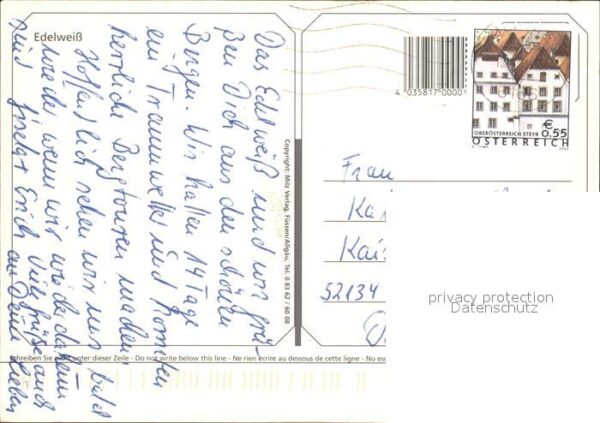 Edelweiß
Das Edelweiß und wir grü-
ßen Dich aus den schönen
Bergen. Wir hatten 14 Tage
ein Traumwetter und konnten
herrliche Bergtouren machen
Hoffentlich sehen wir uns bald
wieder wenn wir wieder daheim
sind Viele Grüße auch
Erich an Deine Lieben
Copyright: Milz Verlag, Füssen/Allgäu, Tel. 0 83 62 / 60 08
4 035817 0000
€
0.55
OBERÖSTERREICH STEYR
ÖSTERREICH
Frau
Ka
Kai
52134
privacy protection
Datenschutz
Schreiben Sie nicht unter dieser Zeile - Do not write below this line - Ne rien écrire au dessous de cette ligne - No esc